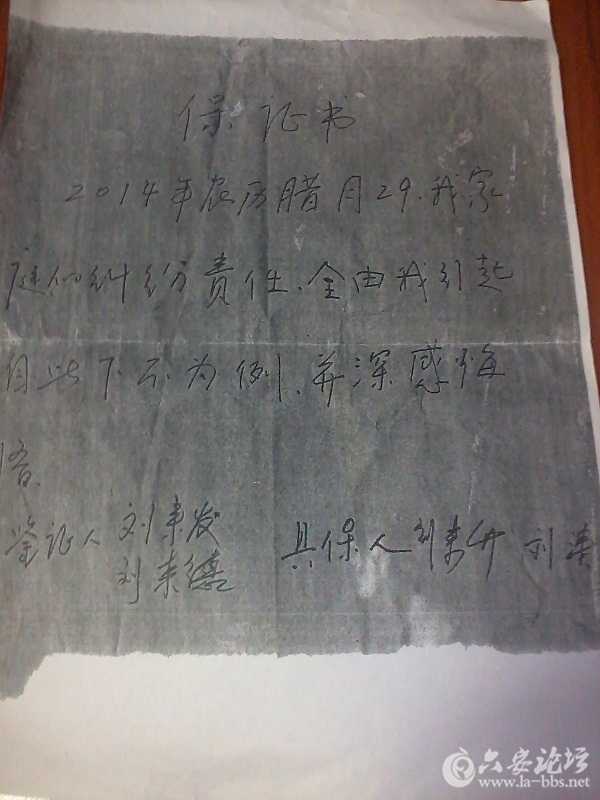 保证书
2014年农历腊月29.我家
庭的纠纷责任、全由我引起
自此下不为例、并深感悔
悟.
鉴证人 刘来发 具保人 刘来升 刘
刘来德
六安论坛
www.la-bbs.net